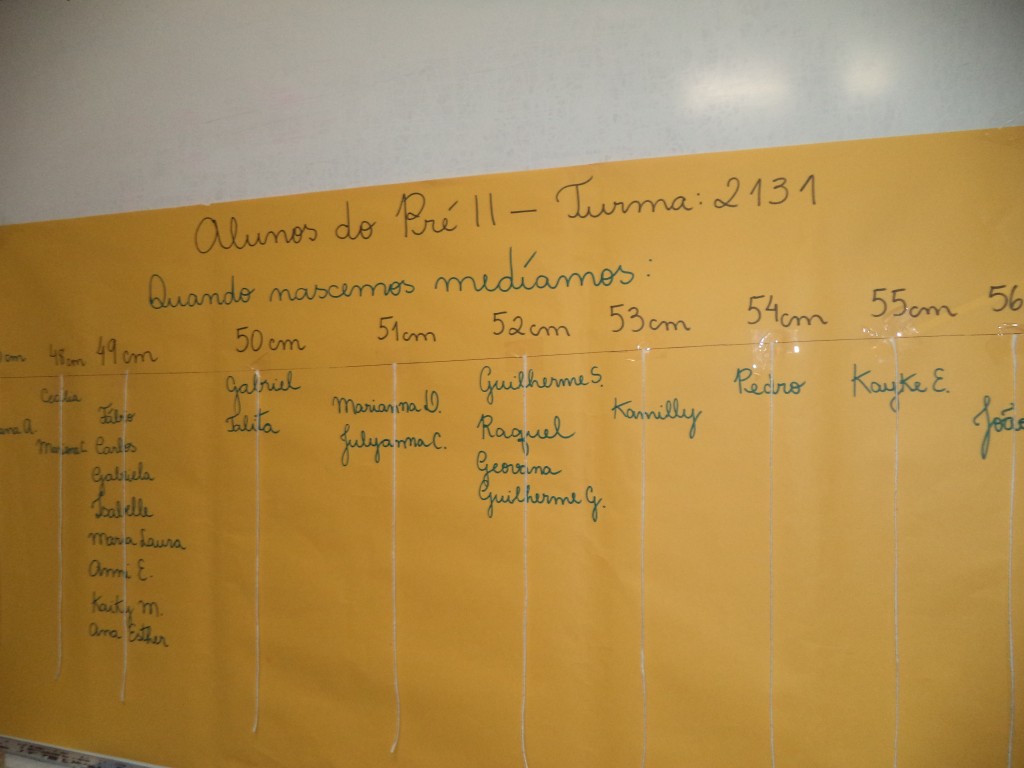 Alunos do Pré II - Turma: 2131
Quando nascemos medíamos:
cm 48cm 49cm 50cm 51cm 52cm 53cm 54cm 55cm 56
ana A.
Cecilia
Mariana C.
Fábio
Carlos
Gabriela
Isabelle
Maria Laura
Anni E.
Kaiky M.
Ana Esther
Gabriel
Talita
Marianna D.
Julyanna C.
Guilherme S.
Raquel
Geovana
Guilherme G.
Kamilly
Pedro
Kayke E.
João